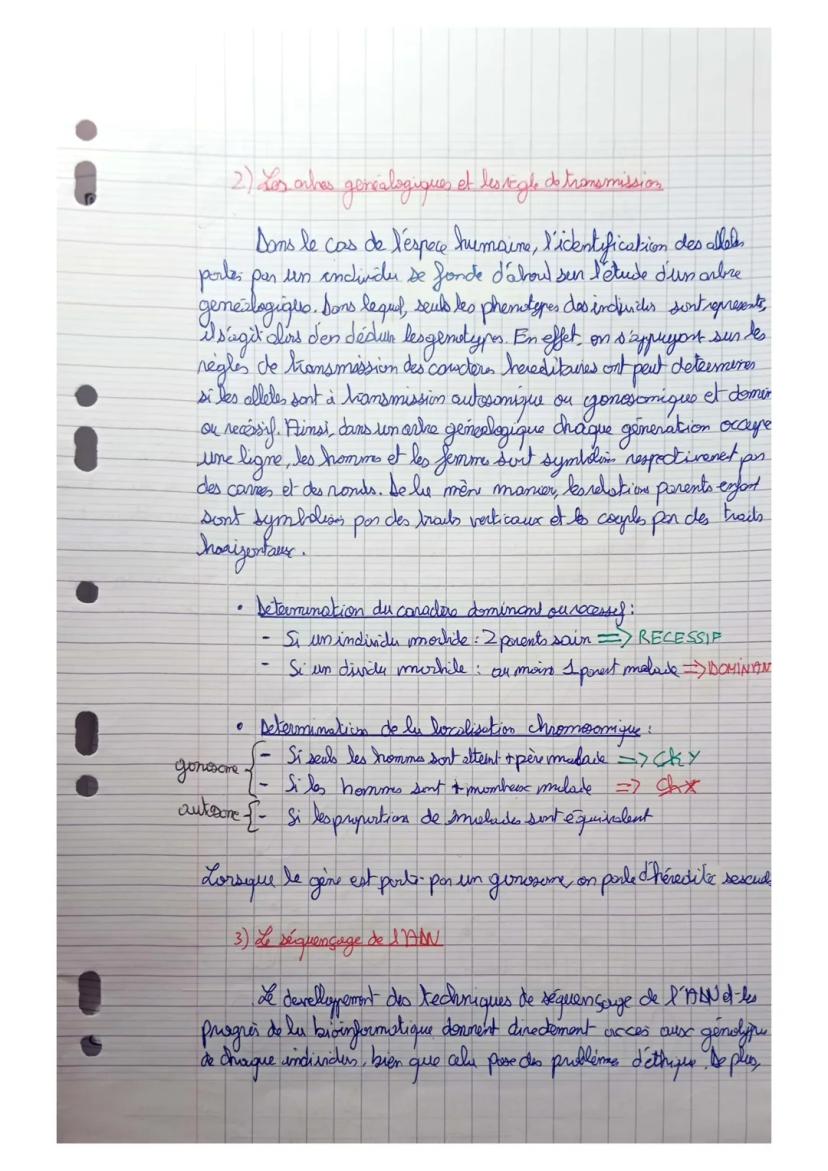 2) Les arbres généalogiques et les règle de transmission
Dans le cas de l'espece humaine, l'identification des alleles
portes par un individu se fonde d'abord sur l'étude d'un arbre
généalogique. Dans lequel, seuls les phenotypes des individus sont represents,
il s'agit alors d'en déduire les genotypes. En effet, en s'appuyant sur les
règles de transmission des caractères hereditaires ont peut determiner
si les alleles sont à transmission autosomique ou gonosomique et domin
ou recéssif. Ainsi, dans un arbre généalogique chaque géneration occupe
une ligne, les homme et les femme sont symbolisés respectivement par
des carres et des ronds. De la même manier, les relations parents-enfant
sont symbolisés par des traits verticaux et les couples par des traits
horizontaux.
• Determination du caractère dominant ou recessif :
- Si un individu morbide : 2 parents sain => RECESSIF
- Si un dividu morbide : au moins 1 parent malade => DOMINAN
• Determination de la localisation chromosomique :
gonosome - Si seuls les hommes sont atteint + père malade => Ch Y
- Si les hommes sont + nombreux malade => Ch X
autosome - Si les proportion de malades sont équivalent
Lorsque le gène est porté par un gonosome, on parle d'héredité sexuel
3) Le séquençage de l'ADN
Le developpement des techniques de séquençage de l'ADN et les
progrès de la bioinformatique donnent directement acces aux génotype
de chaque individus, bien que cela pose des problème d'éthique. De plus,